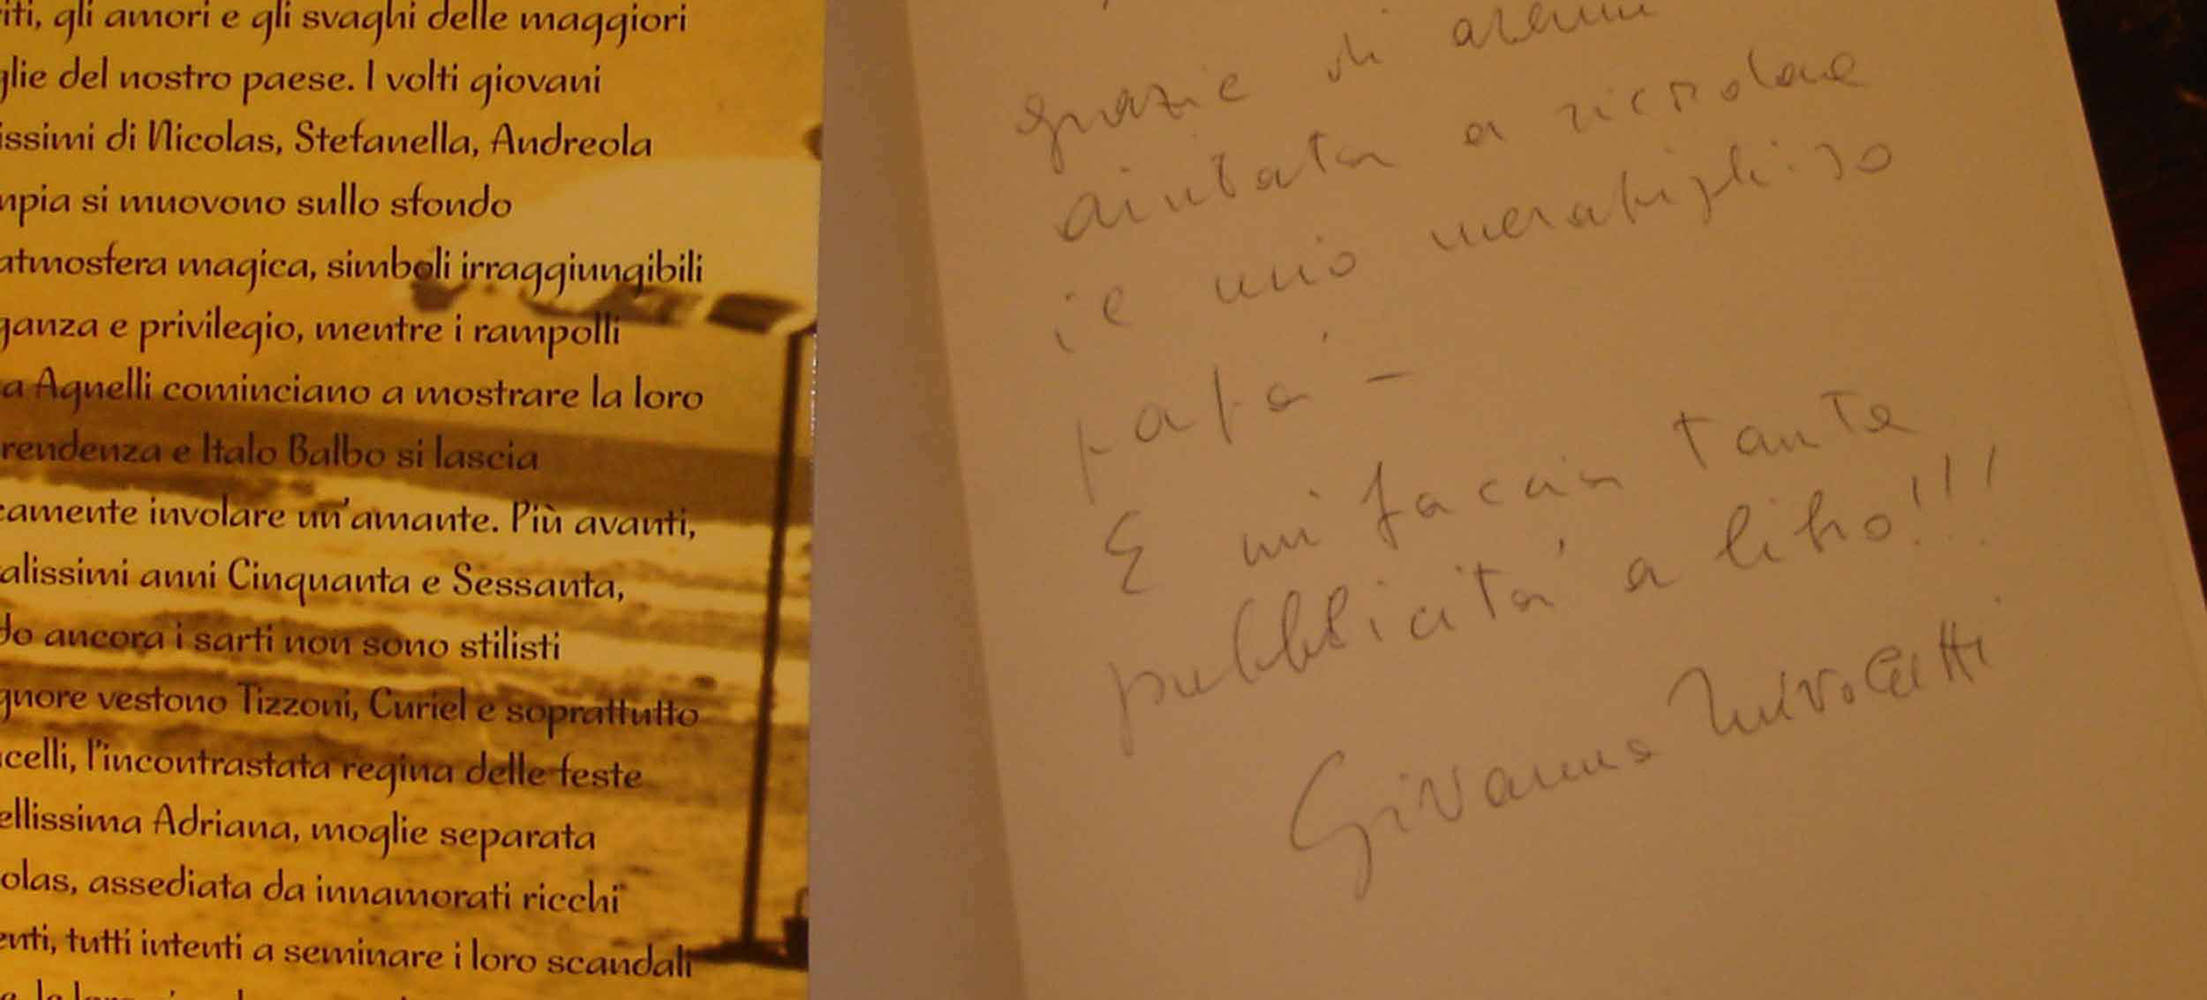 iti, gli amori e gli svaghi delle maggiori
glie del nostro paese. I volti giovani
issimi di Nicolas, Stefanella, Andreola
mpia si muovono sullo sfondo
atmosfera magica, simboli irraggiungibili
ganza e privilegio, mentre i rampolli
a Agnelli cominciano a mostrare la loro
rendenza e Italo Balbo si lascia
camente involare un'amante. Più avanti,
alissimi anni Cinquanta e Sessanta,
do ancora i sarti non sono stilisti
gnore vestono Tizzoni, Curiel e soprattutto
celli, l'incontrastata regina delle feste
ellissima Adriana, moglie separata
olas, assediata da innamorati ricchi
enti, tutti intenti a seminare i loro scandali
grazie di avermi
aiutata a ricordare
il mio meraviglioso
papà -
E mi faccia tanta
pubblicità a libro!!!
Giovanna